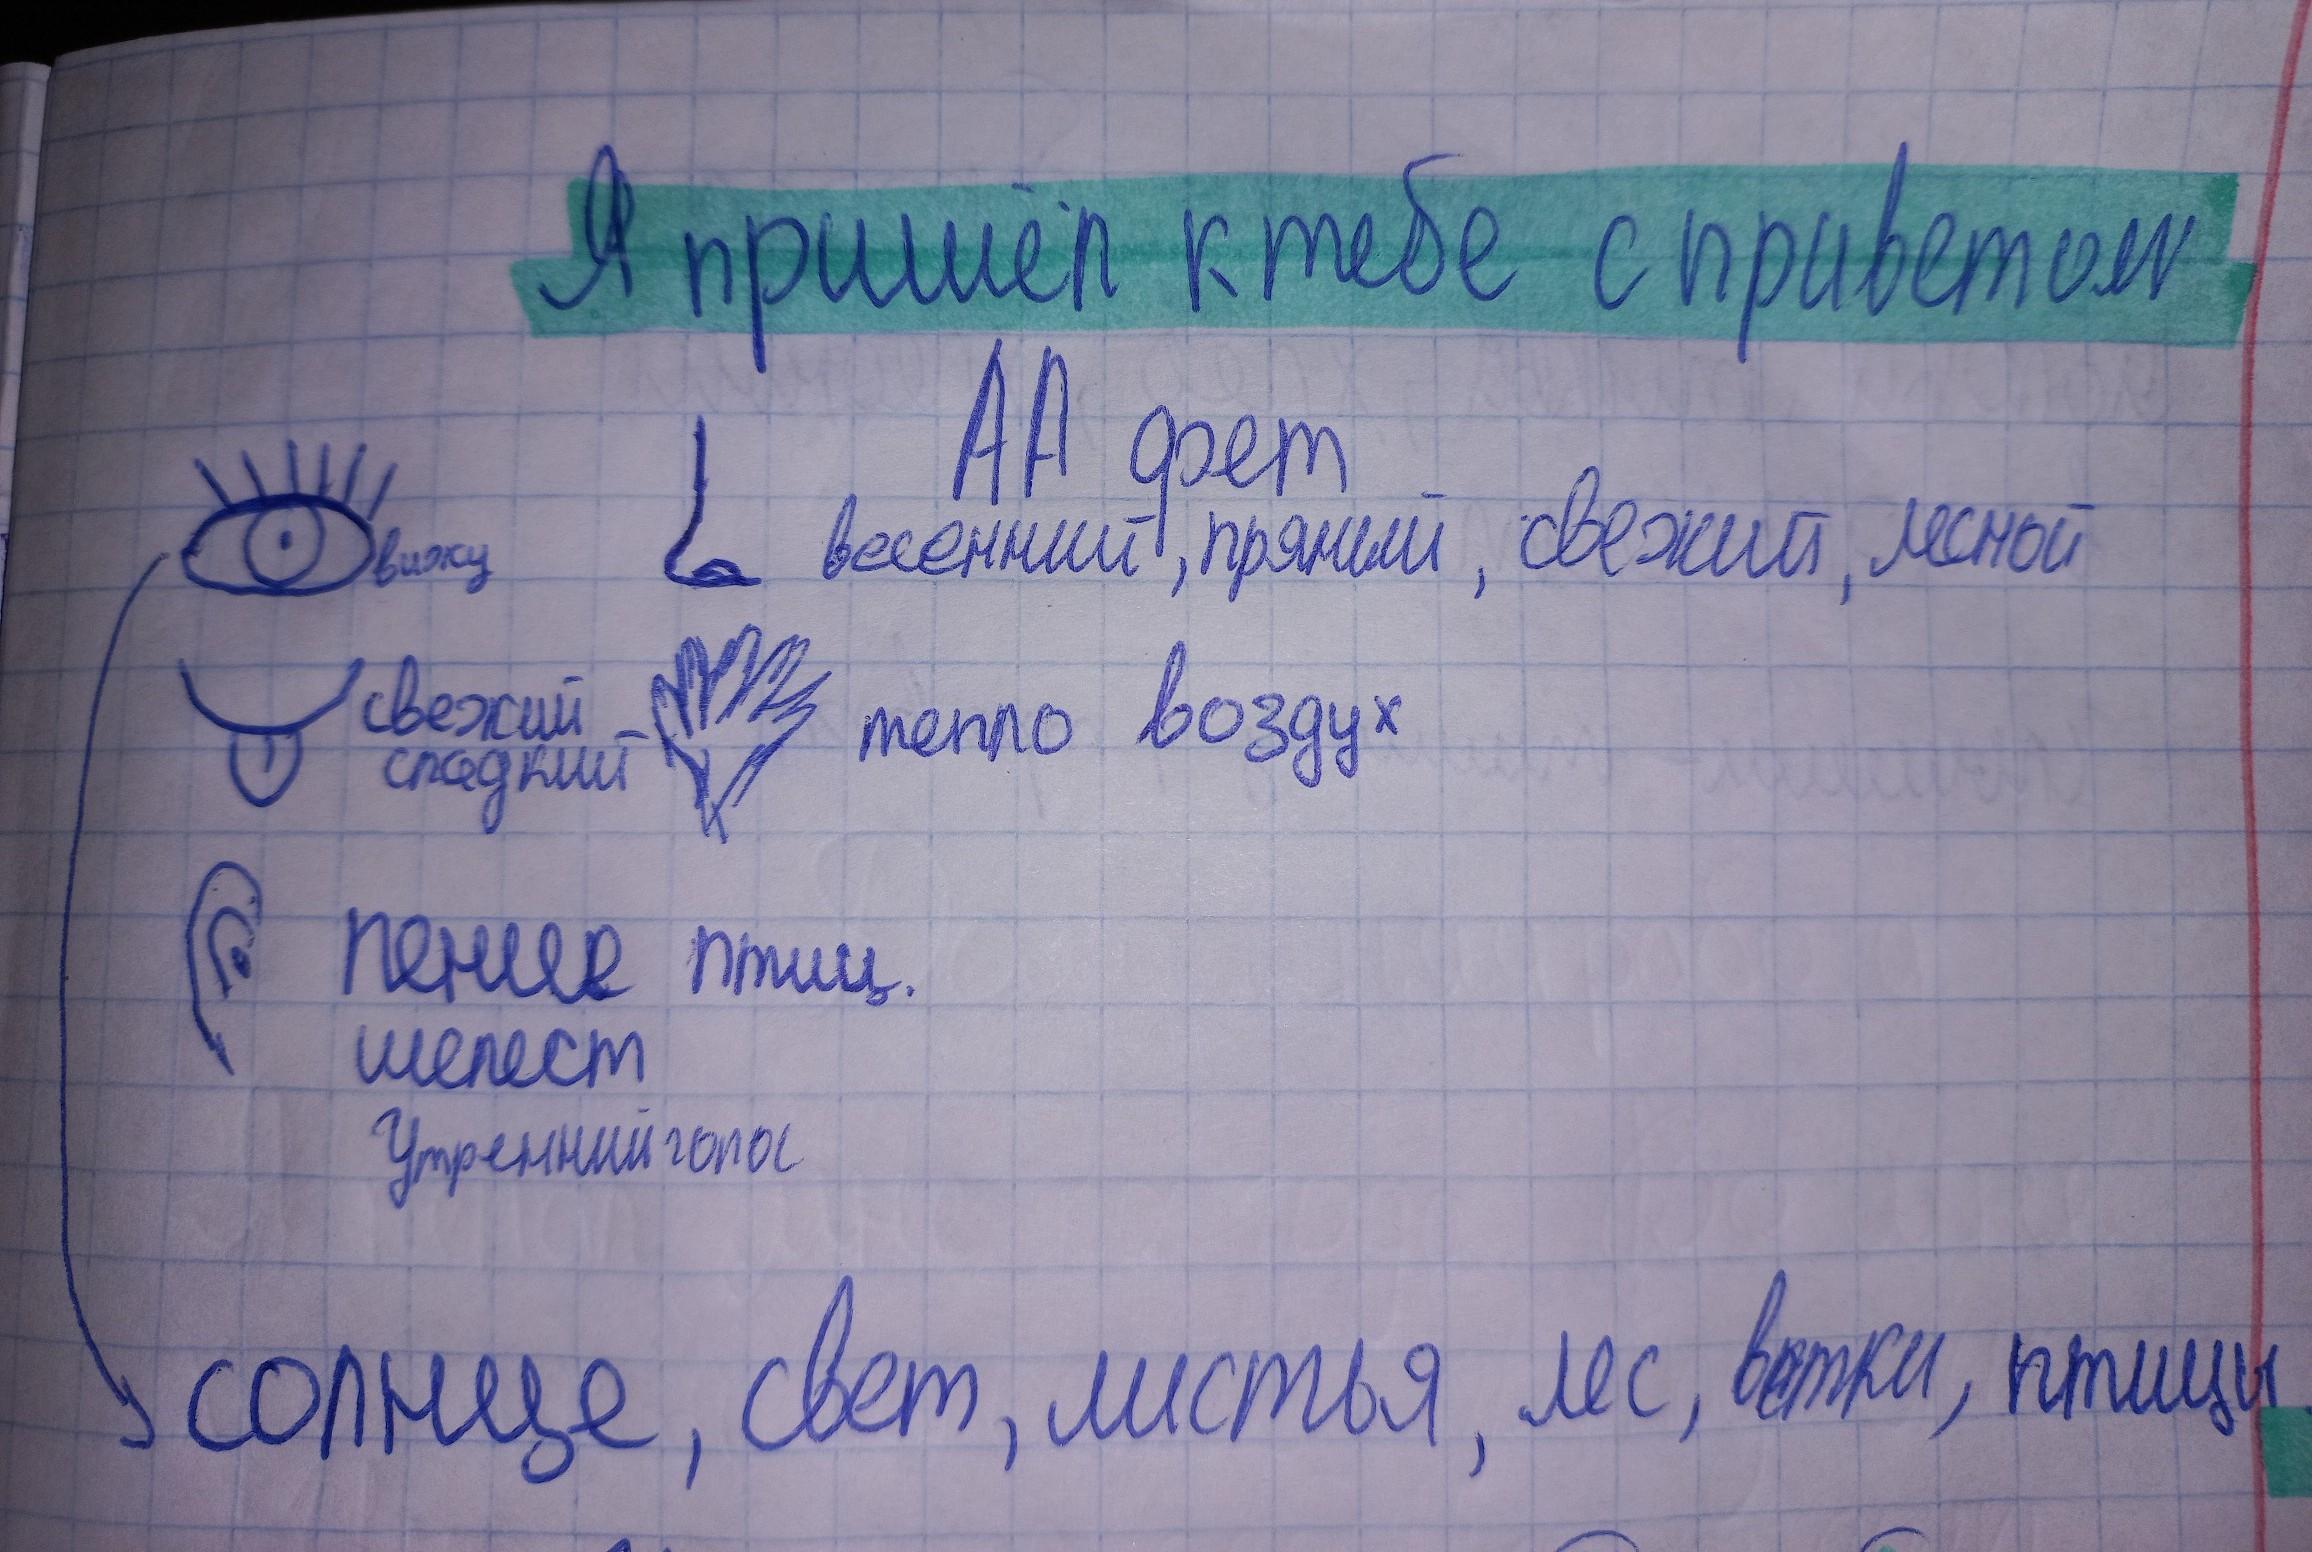 Я пришёл к тебе с приветом
АА фет
вижу
весенний, пряний, свежий, лесной
свежий
сладкий
тепло воздух
пение птиц.
шелест
Утренний голос
солнце, свет, листья, лес, ветки, птицы.